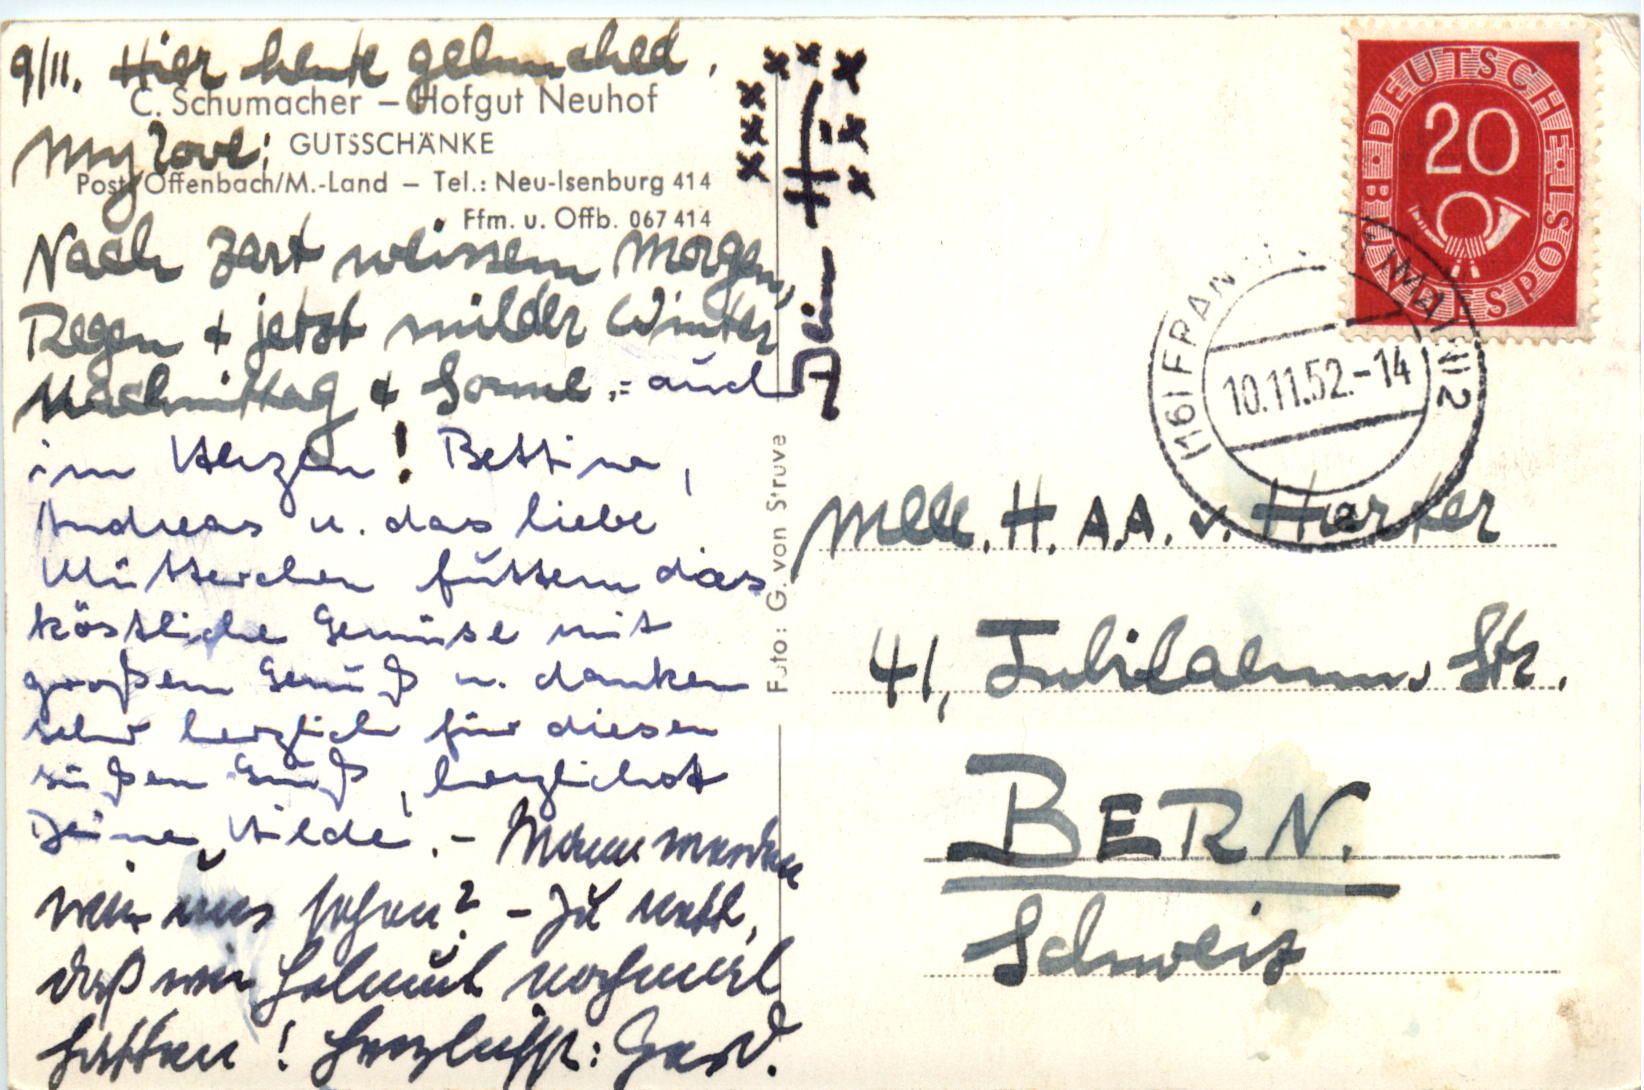 9/11. Hier heute gelunched.
C. Schumacher – Hofgut Neuhof
My Love:
GUTSSCHÄNKE
Post Offenbach/M.-Land – Tel.: Neu-Isenburg 414
Ffm. u. Offb. 067 414
Nach zart weissem Morgen,
Regen + jetzt milder Winter
Nachmittag + Sonne, = auch
im Herzen! Bettina,
Andreas u. das liebe
Mütterchen futtern das
köstliche Gemüse mit
großem Genuß u. danken
sehr herzlich für diesen
süßen Gruß, herzlichst
Deine Hilde. – Wann werden
wir uns sehen? – Zu nett,
daß wir Helmut nochmal
hatten! Herzlichst: Gerd.
Dein – H –
x x x x x x x x x x
Foto: G. von Struve
DEUTSCHE BUNDESPOST
20
(16) FRANKFURT (MAIN) 2
10.11.52.-14
e
Mlle. H. A. A. v. Harker
41, Jubilaeum. Str.
BERN.
Schweiz